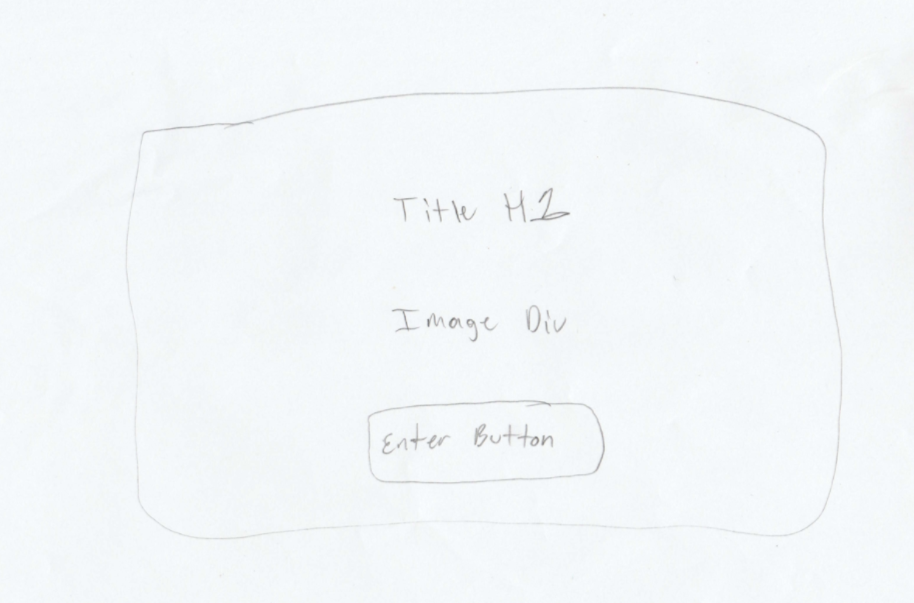 Title H1
Image Div
Enter Button